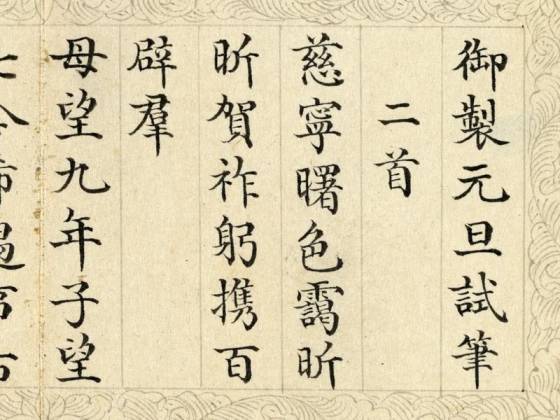 御製元旦試筆
二首
慈寧曙色靄昕
昕賀祚躬攜百
辟羣
母望九年子望